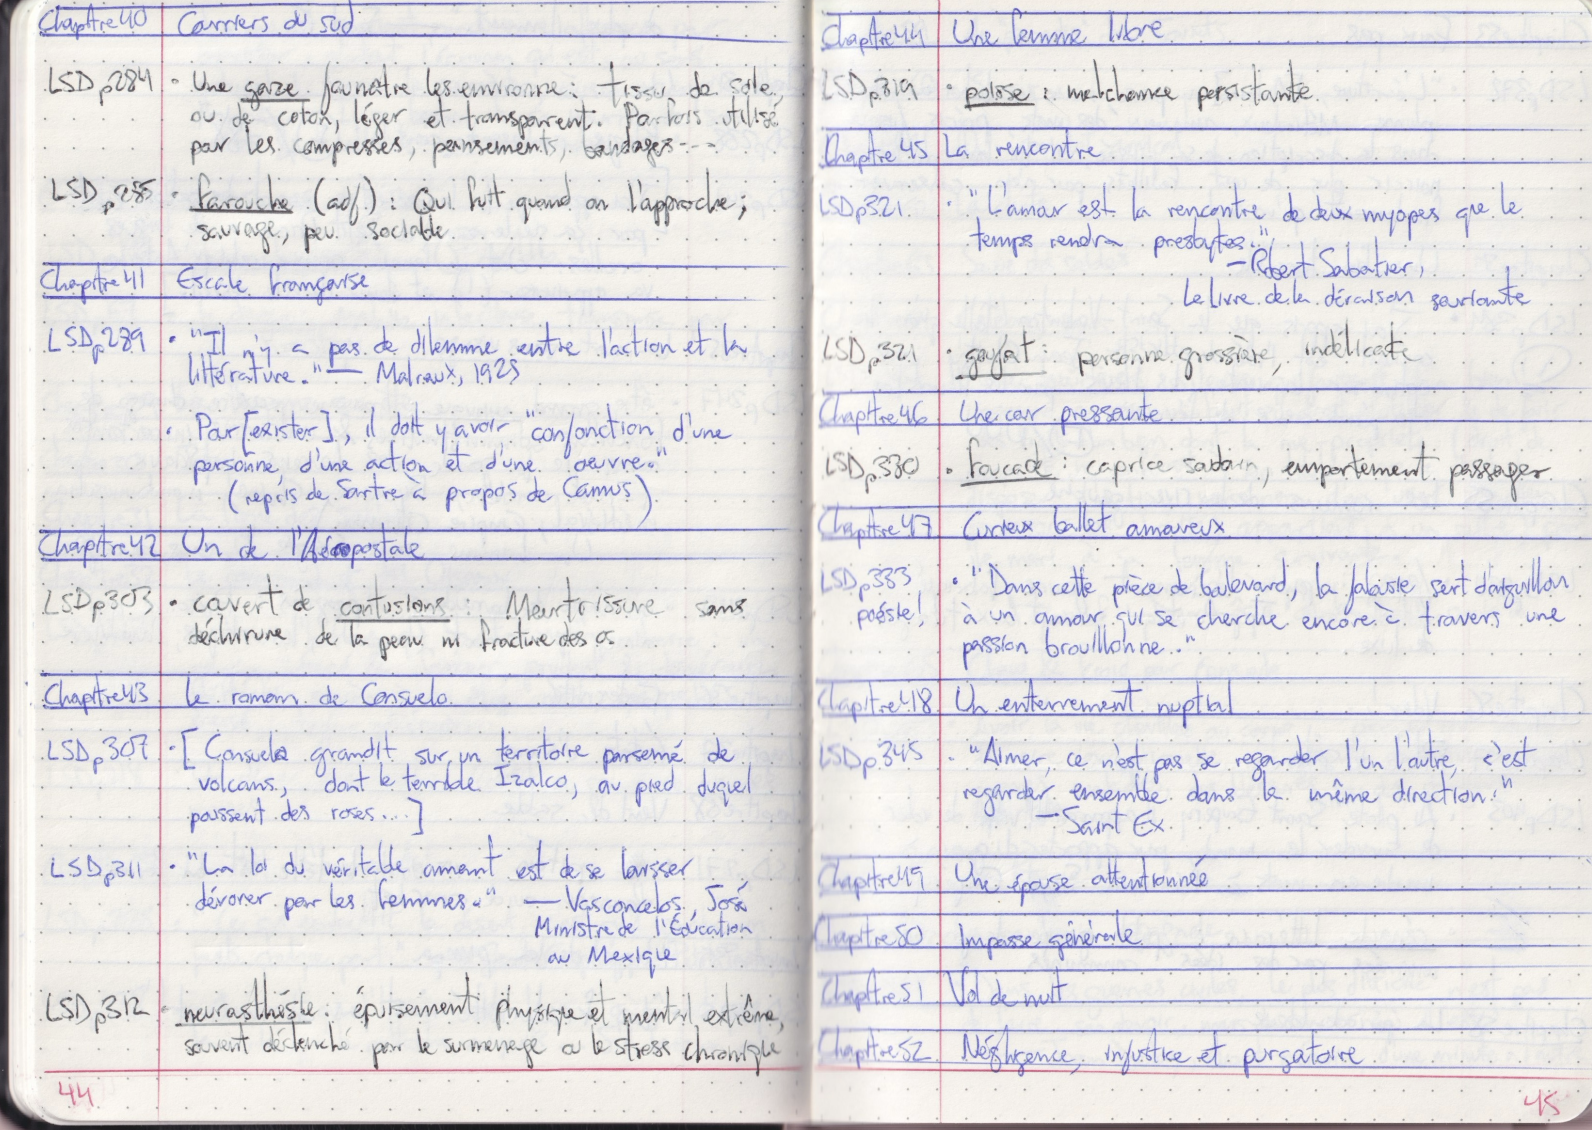 Chapitre 40 Courriers du sud
LSD p284 • Une gaze jaunâtre les environne : tissu de soie
ou de coton, léger et transparent. Parfois utilisé
pour les compresses, pansements, bandages---
LSD p285 • farouche (adj.) : Qui fuit quand on l'approche ;
sauvage, peu sociable.
Chapitre 41 Escale française
LSD p289 • "Il n'y a pas de dilemme entre l'action et la
littérature." — Malraux, 1925
• Pour [exister], il doit y avoir "conjonction d'une
personne d'une action et d'une oeuvre."
(repris de Sartre à propos de Camus)
Chapitre 42 Un de l'Aéropostale
LSD p303 • couvert de contusions : Meurtrissure sans
déchirure de la peau ni fracture des os
Chapitre 43 Le roman de Consuelo
LSD p307 • [Consuelo grandit sur un territoire parsemé de
volcans, dont le terrible Izalco, au pied duquel
poussent des roses...]
LSD p311 • "La loi du véritable amant est de se laisser
dévorer par les femmes." — Vasconcelos, José
Ministre de l'Éducation
au Mexique
LSD p312 • neurasthésie : épuisement physique et mental extrême,
souvent déclenché par le surmenage ou le stress chronique
44
Chapitre 44 Une femme libre
LSD p319 • poisse : malchance persistante
Chapitre 45 La rencontre
LSD p321 • "L'amour est la rencontre de deux myopes que le
temps rendra presbytes."
— Robert Sabatier,
Le livre de la déraison souriante
LSD p321 • goujat : personne grossière, indélicate
Chapitre 46 Une cour pressante
LSD p330 • foucade : caprice soudain, emportement passager
Chapitre 47 Curieux ballet amoureux
LSD p333 • "Dans cette pièce de boulevard, la jalousie sert d'aiguillon
poésie! à un amour qui se cherche encore à travers une
passion brouillonne."
Chapitre 48 Un enterrement nuptial
LSD p345 • "Aimer, ce n'est pas se regarder l'un l'autre, c'est
regarder ensemble dans la même direction."
— Saint Ex
Chapitre 49 Une épouse attentionnée
Chapitre 50 Impasse générale
Chapitre 51 Vol de nuit
Chapitre 52 Négligence, injustice et purgatoire
45